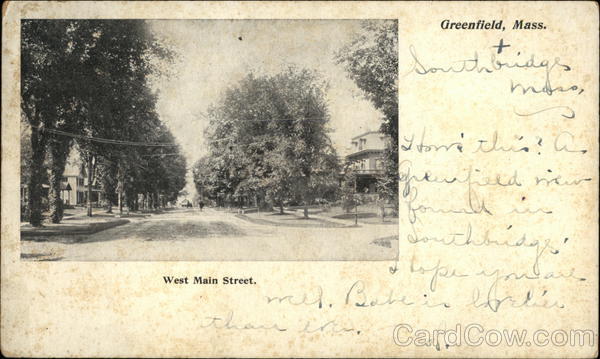 Greenfield, Mass.
+
Southbridge
Mass,
How's this? A
Greenfield view
found in
Southbridge!
Hope you are
well. Babe is lovelier
than ever.
West Main Street.
CardCow.com